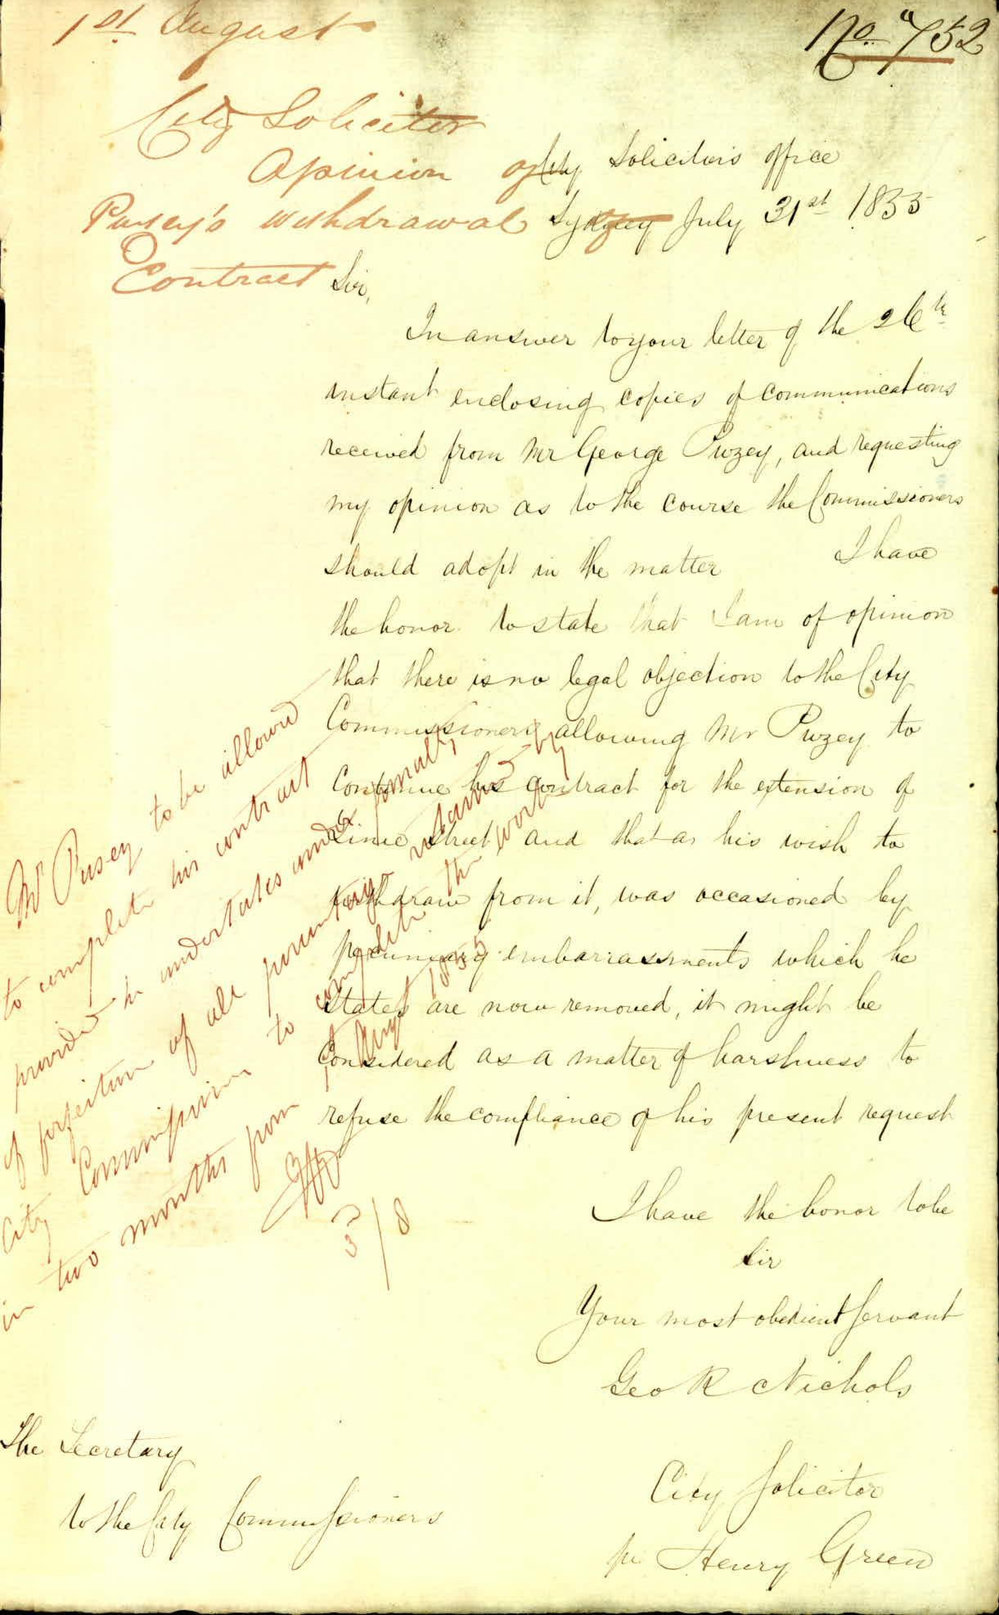 1st. August
No. 752
City Soliciter
Opinion of
Pusey's withdrawal
Contract
City Solicitors office
Sydney July 31st 1855
Sir,
In answer to your letter of the 26th
instant enclosing copies of communications
received from Mr George Puzey, and requesting
my opinion as to the course the Commissioners
should adopt in the matter I have
the honor to state that I am of opinion
that there is no legal objection to the City
Commissioners allowing Mr Puzey to
Continue his contract for the extension of
Lime Street and that as his wish to
withdraw from it, was occasioned by
pecuniary embarrassments which he
States are now removed, it might be
Considered as a matter of harshness to
refuse the compliance of his present request
I have the honor to be
Sir
Your most obedient Servant
Geo R Nichols
City Solicitor
pr Henry Green
The Secretary
to the City Commissioners
Mr Pusey to be allowed
to complete his contract
provided he undertakes under penalty
of forfeiture of all percentage retained by
City Commissioners to complete the work
in two months from 1st Augt 1855
3/8